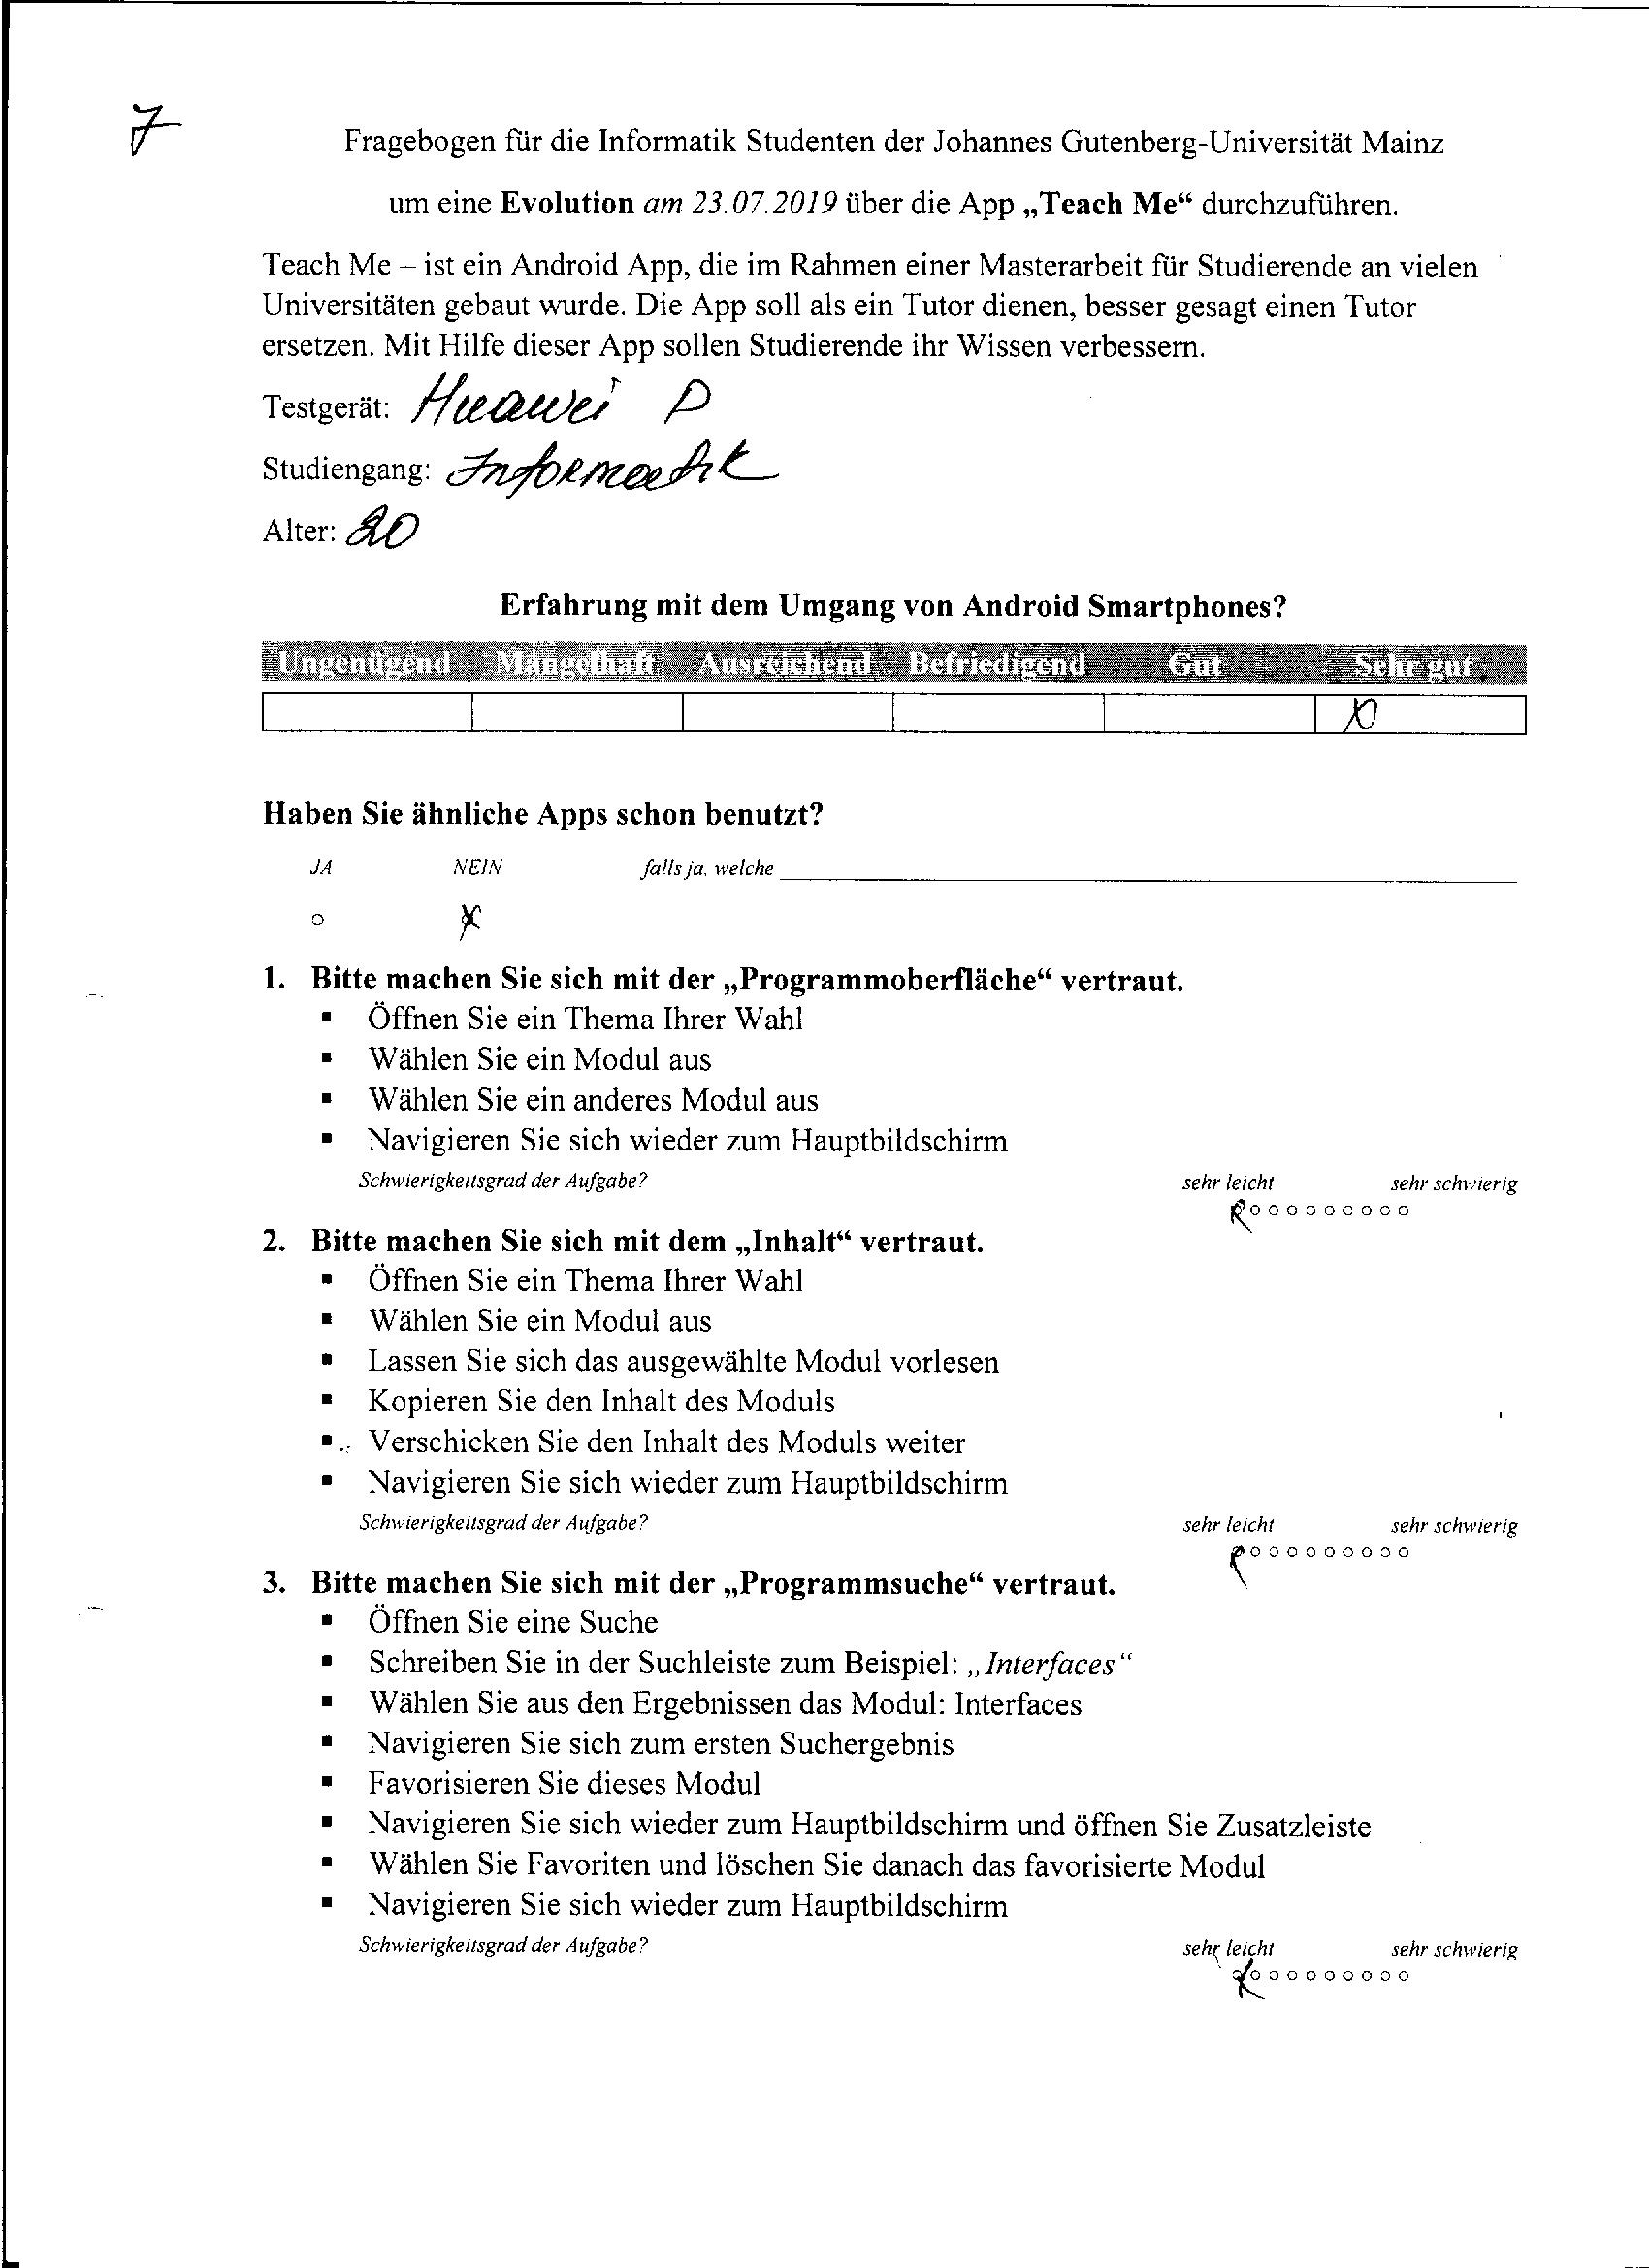 7
Fragebogen für die Informatik Studenten der Johannes Gutenberg-Universität Mainz
um eine Evolution am 23.07.2019 über die App „Teach Me“ durchzuführen.
Teach Me – ist ein Android App, die im Rahmen einer Masterarbeit für Studierende an vielen
Universitäten gebaut wurde. Die App soll als ein Tutor dienen, besser gesagt einen Tutor
ersetzen. Mit Hilfe dieser App sollen Studierende ihr Wissen verbessern.
Testgerät: Huawei P
Studiengang: Informatik
Alter: 20
Erfahrung mit dem Umgang von Android Smartphones?
Ungenügend Mangelhaft Ausreichend Befriedigend Gut Sehr gut
Haben Sie ähnliche Apps schon benutzt?
JA NEIN falls ja, welche
1. Bitte machen Sie sich mit der „Programmoberfläche“ vertraut.
▪ Öffnen Sie ein Thema Ihrer Wahl
▪ Wählen Sie ein Modul aus
▪ Wählen Sie ein anderes Modul aus
▪ Navigieren Sie sich wieder zum Hauptbildschirm
Schwierigkeitsgrad der Aufgabe? sehr leicht sehr schwierig
2. Bitte machen Sie sich mit dem „Inhalt“ vertraut.
▪ Öffnen Sie ein Thema Ihrer Wahl
▪ Wählen Sie ein Modul aus
▪ Lassen Sie sich das ausgewählte Modul vorlesen
▪ Kopieren Sie den Inhalt des Moduls
▪ Verschicken Sie den Inhalt des Moduls weiter
▪ Navigieren Sie sich wieder zum Hauptbildschirm
Schwierigkeitsgrad der Aufgabe? sehr leicht sehr schwierig
3. Bitte machen Sie sich mit der „Programmsuche“ vertraut.
▪ Öffnen Sie eine Suche
▪ Schreiben Sie in der Suchleiste zum Beispiel: „Interfaces“
▪ Wählen Sie aus den Ergebnissen das Modul: Interfaces
▪ Navigieren Sie sich zum ersten Suchergebnis
▪ Favorisieren Sie dieses Modul
▪ Navigieren Sie sich wieder zum Hauptbildschirm und öffnen Sie Zusatzleiste
▪ Wählen Sie Favoriten und löschen Sie danach das favorisierte Modul
▪ Navigieren Sie sich wieder zum Hauptbildschirm
Schwierigkeitsgrad der Aufgabe? sehr leicht sehr schwierig